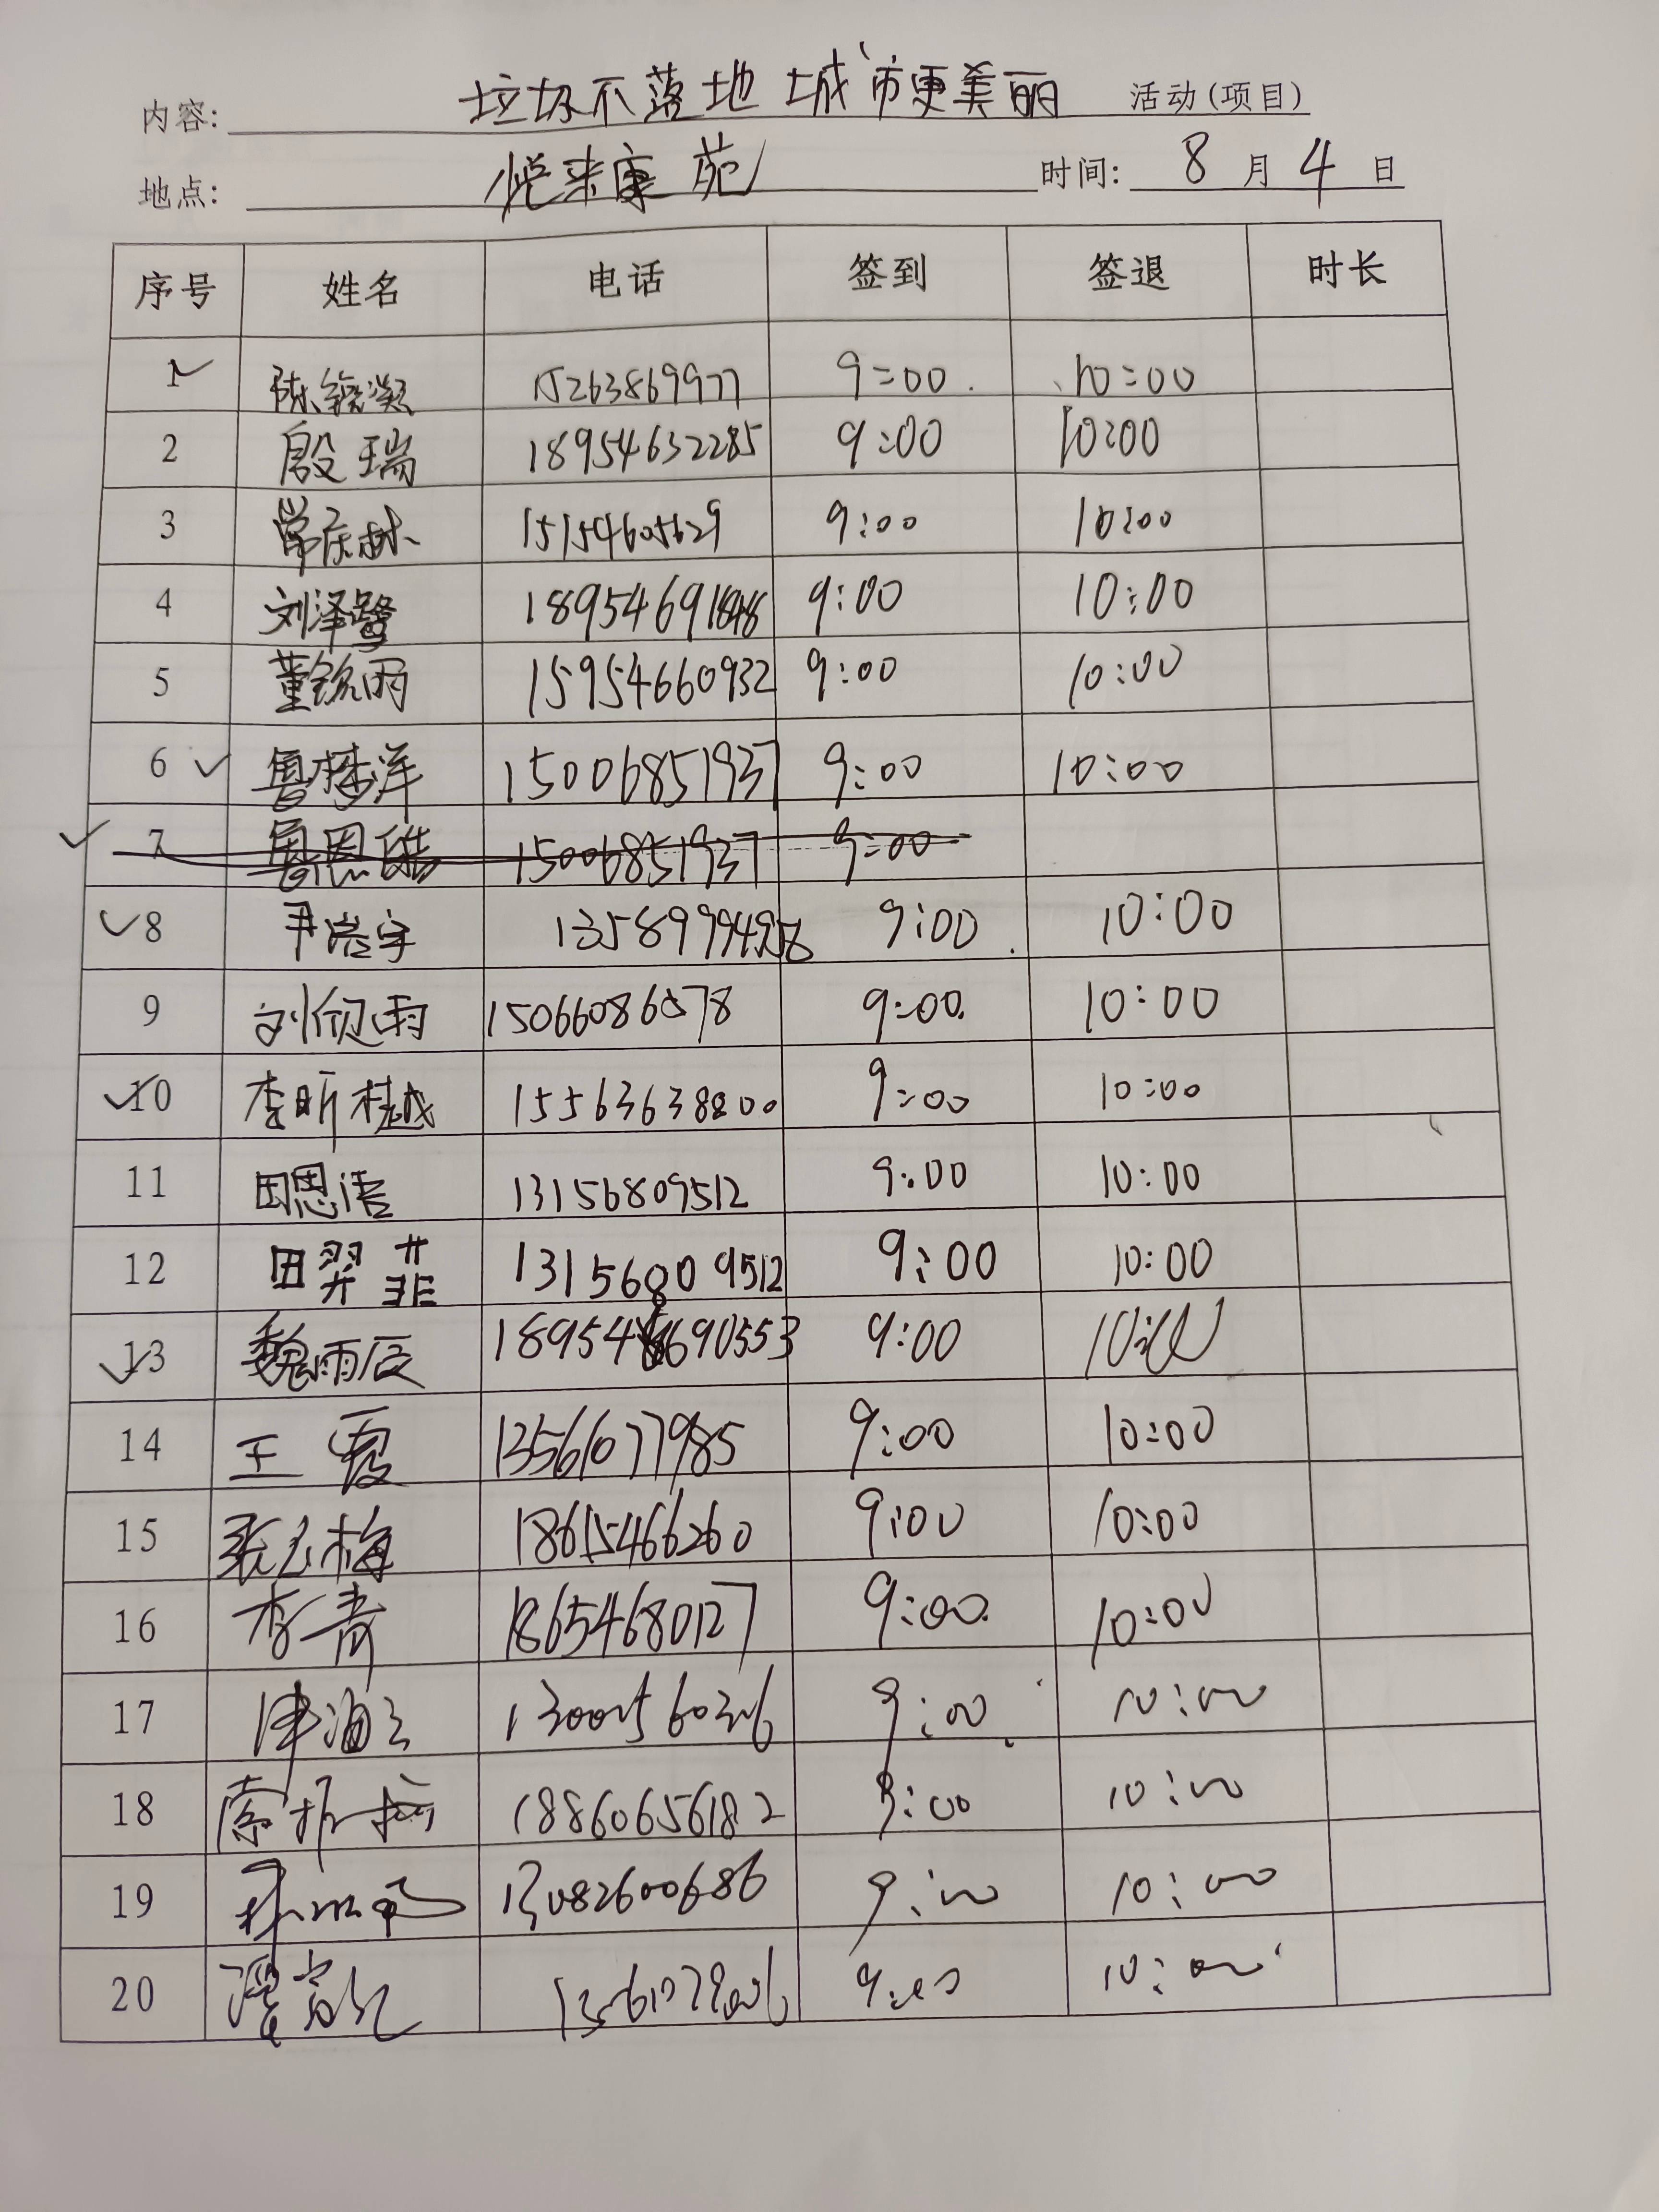 内容: 垃圾不落地 城市更美丽 活动(项目)
地点: 悦来康苑 时间: 8 月 4 日
序号 姓名 电话 签到 签退 时长
1 陈 15263869977 9:00 10:00
2 殷瑞 18954632285 9:00 10:00
3 常庆林 15154605629 9:00 10:00
4 刘泽鹭 18954691848 9:00 10:00
5 董铭雨 15954660932 9:00 10:00
6 鲁梓洋 15006851937 9:00 10:00
7 鲁恩皓 15006851937 9:00
8 尹浩宇 9:00 10:00
9 刘欣雨 15066086078 9:00 10:00
10 李昕樾 15563638800 9:00 10:00
11 田恩语 13156809512 9:00 10:00
12 田羿菲 13156809512 9:00 10:00
13 魏雨辰 9:00 10:00
14 王霞 13561077985 9:00 10:00
15 张玉梅 18615466260 9:00 10:00
16 李青 18654680127 9:00 10:00
17 9:00 10:00
18 18860656182 9:00 10:00
19 13082600686 9:00 10:00
20 9:00 10:00